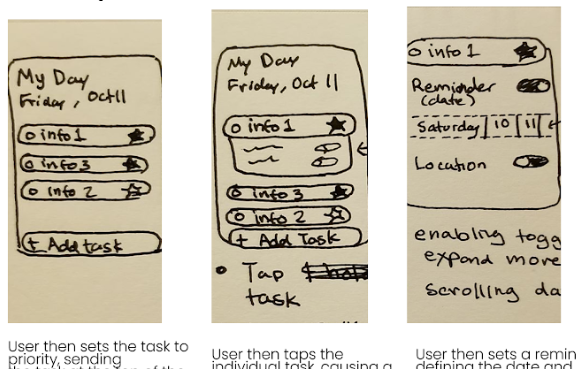 My Day
Friday, Oct 11
o info 1
o info 3
o info 2
+ Add task
User then sets the task to
priority, sending
the task at the top of the
My Day
Friday, Oct 11
o info 1
o info 3
o info 2
+ Add Task
• Tap
task
User then taps the
individual task, causing a
o info 1
Reminder
(date)
Saturday | 10 | 11 |
Location
enabling togg
expand more
scrolling da
User then sets a remin
defining the date and